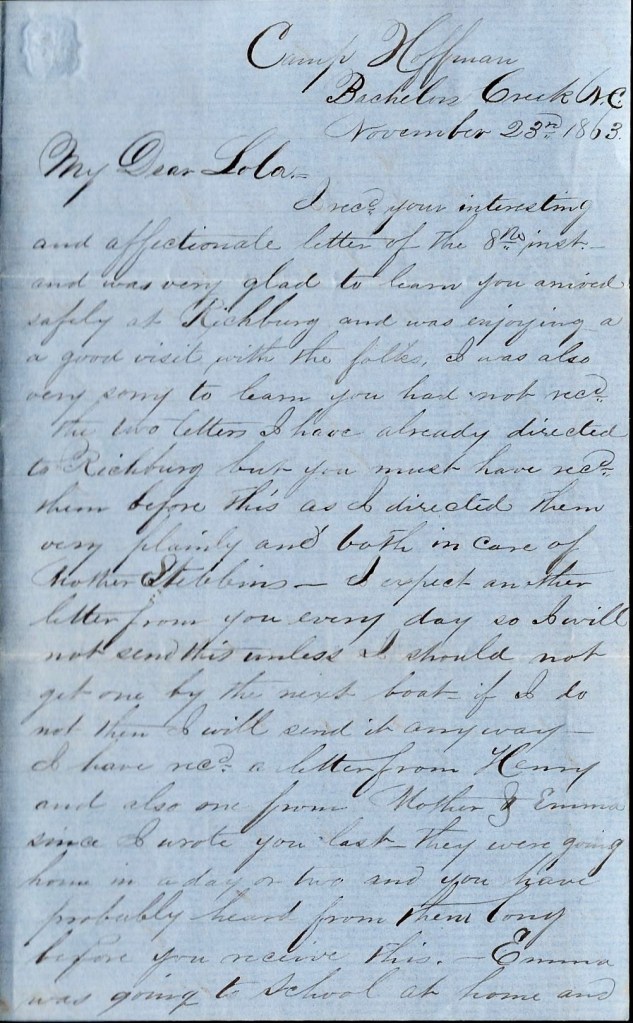 Camp Hoffman
Bachelors Creek N.C.
November 23rd 1863.
My Dear Lola.=
I recd. your interesting
and affectionate letter of the 8th inst.—
and was very glad to learn you arrived
safely at Richburg and was enjoying a
a good visit with the folks, I was also
very sorry to learn you had not recd.
the two letters I have already directed
to Richburg but you must have recd.
them before this as I directed them
very plainly and both in care of
Mother Stebbins — I expect another
letter from you every day so I will
not send this unless I should not
get one by the next boat — if I do
not then I will send it any way —
I have recd. a letter from Henry
and also one from Mother & Emma
since I wrote you last — they were going
home in a day or two and you have
probably heard from them long
before you receive this. — Emma
was going to School at home and